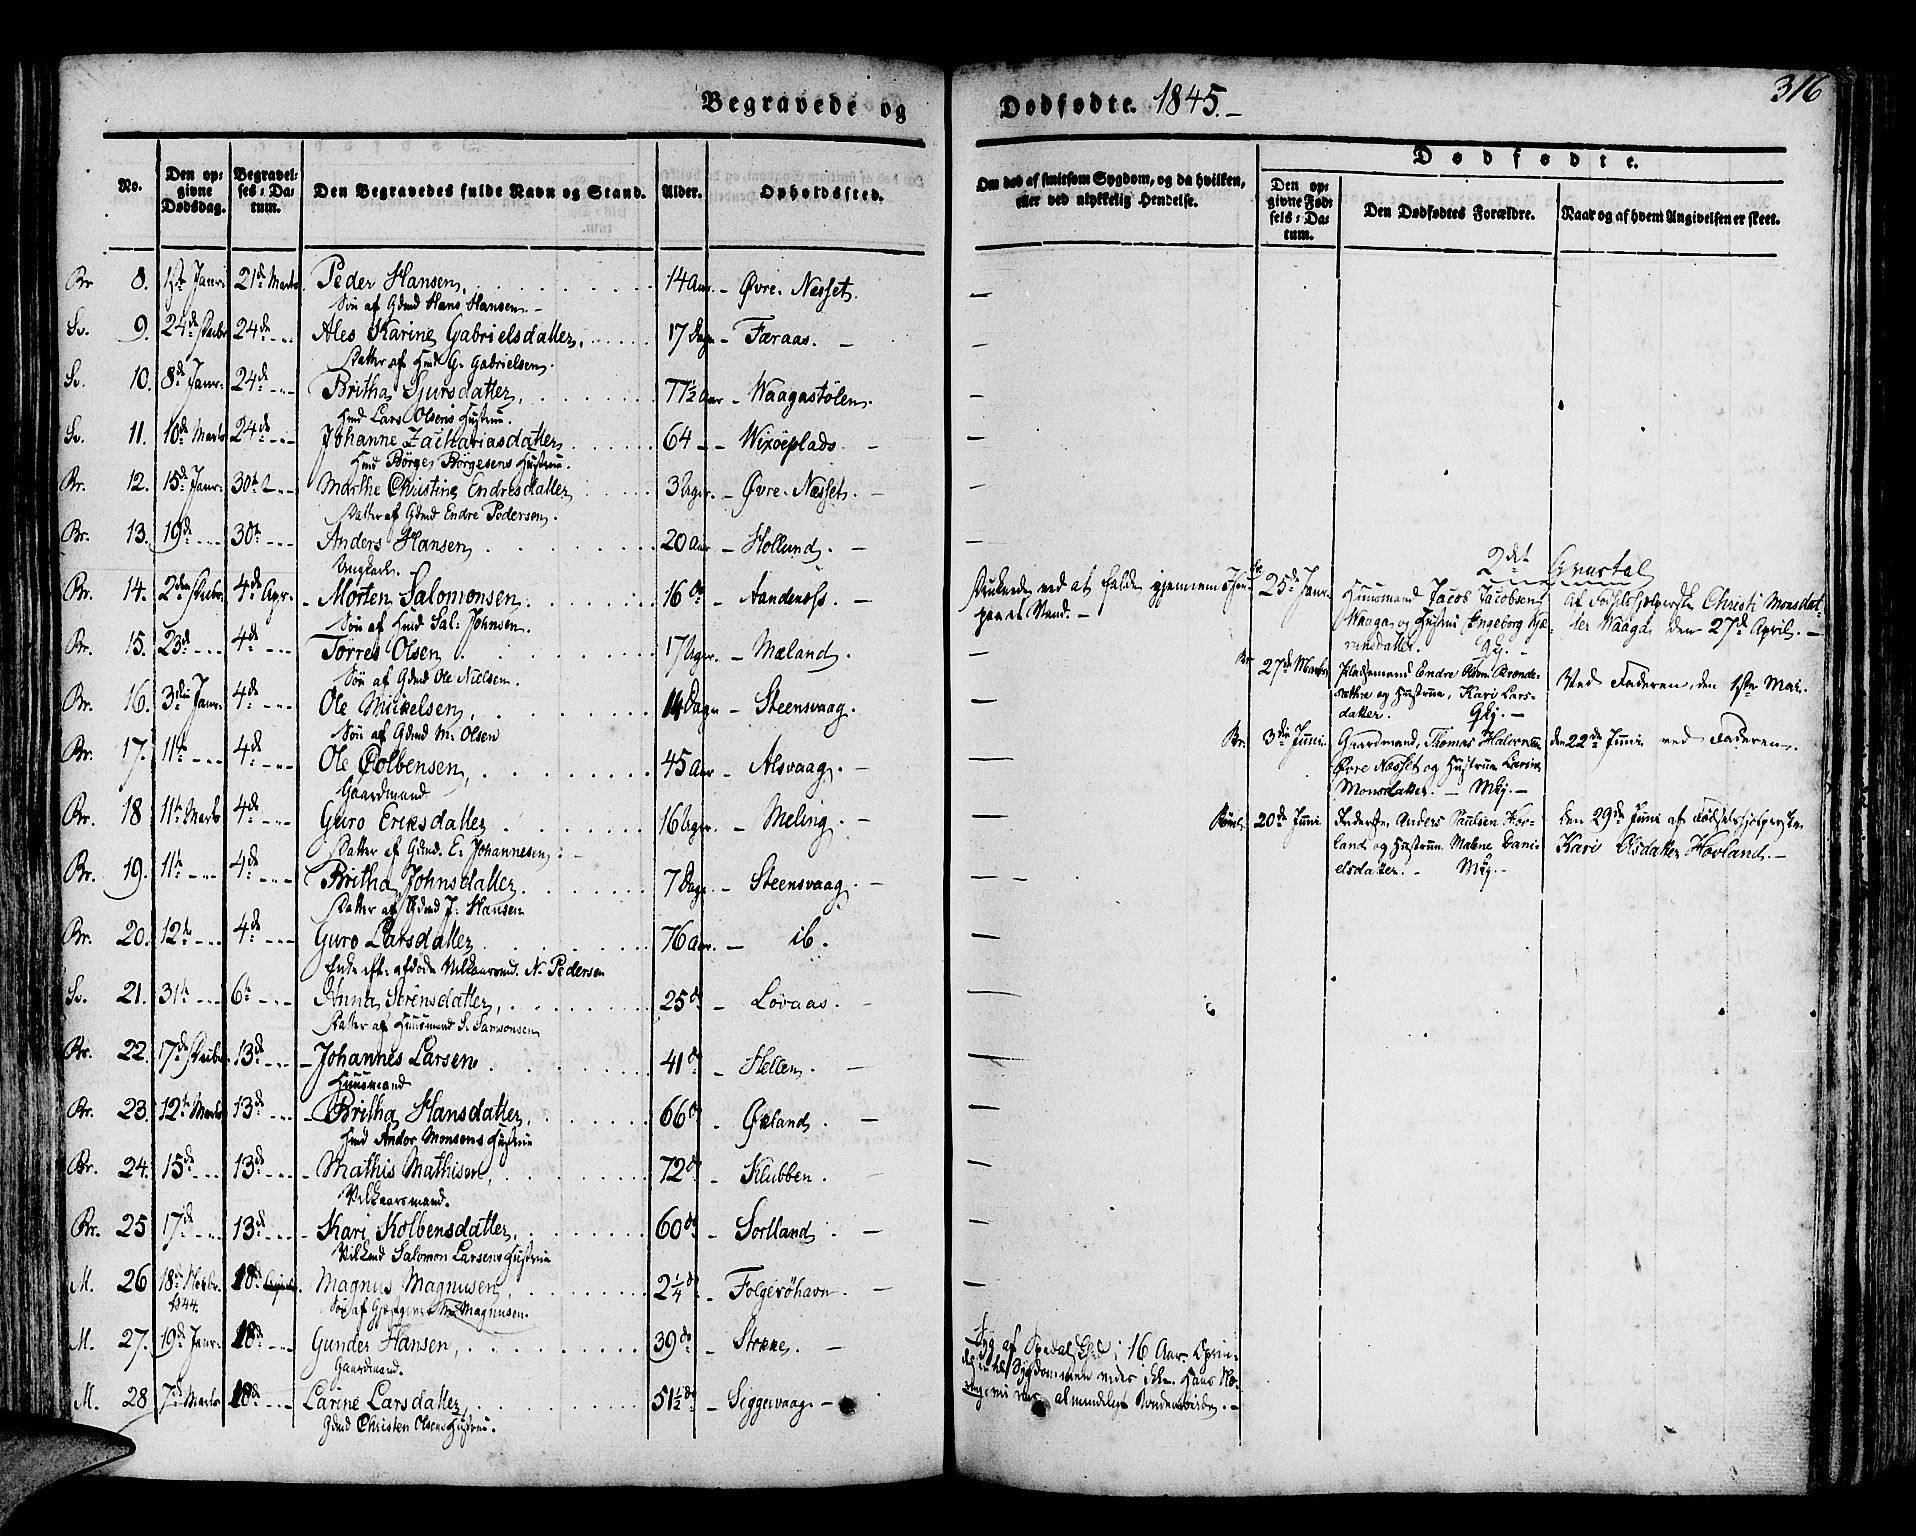 Begravede og
Dødfødte. 1845.
316
No.
Den opgivne Dødsdag.
Begravelses-Datum.
Den Begravedes fulde Navn og Stand.
Alder.
Opholdssted.
Om død af smitsom Sygdom, og da hvilken,
eller ved ulykkelig Hendelse.
Dødfødte.
Den opgivne Fødsels-Datum.
Den Dødfødtes Forældre.
Naar og af hvem Angivelsen er skeet.
Br. 8. Janr: 21de Marts Peder Hansen, 14 Aar. – Øvre Nesset. –
Søn af Gdmd Hans Hansen. –
Sv. 9. 24de 24de Ales Karine Gabrielsdatter, 17 Dage – Færaas. –
Datter af Hmd G. Gabrielsen.
Sv. 10. 8de Janr: 24de Britha Sjursdatter, 77½ Aar – Waagastølen.
Hmd Lars Olsens Hustrue.
Sv. 11. 10de Marts 24de Johanne Zachariasdatter, 64 – Wixøeplads –
Hmd Børge Børgesens Hustrue.
Br. 12. 15de Janr: 30te Marthe Christine Endresdatter, 3 Uger. – Øvre Nesset. –
Datter af Gdmd Endre Pedersen.
Br. 13. 19de 30te Anders Hansen, 20 Aar – Hollund. –
Ungkarl. –
Br. 14. 2den 4de Apr. – Morten Salomonsen. 16 do – Aandenoss. Druknede ved at falde gjennem
Søn af Hmd Sal: Johnsen. paa et Vand. –
Br. 15. 23de 4de Torres Olsen 17 Uger. – Mæland. –
Søn af Gdmd Ole Nielsen.
Br. 16. 3die Janr: 4de Ole Mikkelsen, 14 Dage – Steensvaag. –
Søn af Gdmd M. Olsen
Br. 17. 11te 4de Ole Colbensen, 45 Aar – Alsvaag. –
Gaardmand
Br. 18 11te Marts 4de Guro Eriksdatter 16 Uger. – Meling. –
Datter af Gdmd. E. Johannesen. –
Br. 19. 11te 4de Britha Johnsdatter. 7 Dage – Steensvaag. –
Datter af Gdmd J. Hansen
Br. 20. 12te 4de Guro Larsdatter 76 Aar. – ib. –
Enke eft: afdøde Vilkaarsmd. N. Pedersen
Sv. 21. 31te 6te Anna Sørensdatter, 25 do – Lovaas. –
Datter af Huusmand S. Samsonsen
Br. 22. 17de 13de – Johannes Larsen 41 do – Hellen. –
Huusmand
Br. 23. 12te Marts 13de – Britha Hansdatter, 66 do – Økland. –
Hmd Andor Monsens Hustrue
Br. 24. 15de 13de – Mathis Mathisen, 72 do – Klubben. –
Vilkaarsmand.
Br. 25 17de 13de – Kari Kolbensdatter, 60 do – Sortland. –
Vilkmd Salomon Larsens Hustrue
M. 26 18de 1844. 18de April. Magnus Magnusen, 2¼ do – Folgerøhavn. –
Søn af Gjestgiver M. Magnusen.
M. 27. 19de Janr: 18de Gunder Hansen, 39 do – Stokke. –
Gaardmand.
M. 28 7de Marts 18de Larine Larsdatter, 51½ do – Siggervaag –
Gdmd Christen Olsens Hustrue.
Syg af Spedalskhed i 16 Aar. Oprin-
delsen til Sygdommen vides ikke. Hans Næ-
ringsvei var almindelige Bondearbeide. –
2det Qvartal
25de Janr. Huusmand Jacob Jacobsen
Waage og Hustrue Ingeborg
Gkj. –
Af Fødselshjelperske Christi Monsdat-
ter Waage den 27de April. –
Br. 27de Marts Pladsemand Endre Olsen
og Hustrue, Kari Lars-
datter. Gkj. –
Ved Faderen, den 1ste Mai.
Br. 3die Juni Gaardmand, Thomas
Øvre Nesset og Hustrue
Monsdatter. – Mkj. –
den 22de Juni ved Faderen.
20de Juni Inderste, Anders Paulsen Hov-
land og Hustrue Malene Dani-
elsdatter. – Mkj. –
den 29de Juni af Fødselshjelperske
Kari Olsdatter Hovland. –